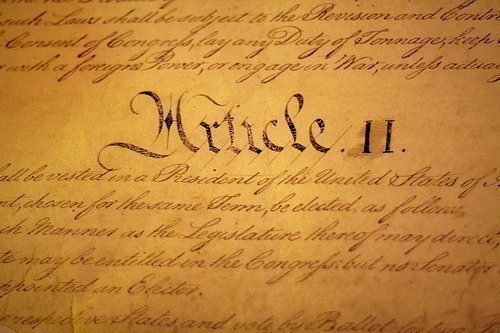 such Laws shall be subject to the Revision and Contr
Consent of Congress, lay any Duty of Tonnage, keep
with a foreign Power, or engage in War, unless actua
Article. II.
all be vested in a President of the United States of
nt, chosen for the same Term, be elected, as follows
ch Manner as the Legislature thereof may direct
to may be entitled in the Congress: but no Senator
ppointed an Elector.
respective States, and vote by Ballot